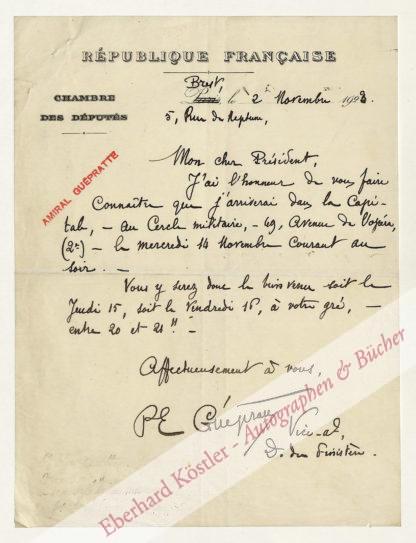 RÉPUBLIQUE FRANÇAISE
CHAMBRE
DES DÉPUTÉS
Brest,
Paris, le 2 Novembre 1923.
5, Rue de Neptune,
AMIRAL GUÉPRATTE
Mon cher Président,
J'ai l'honneur de vous faire
Connaître que j'arriverai dans la Capi-
tale, - au Cercle militaire, - 49, Avenue de l'Opéra,
(2e) - le mercredi 14 Novembre Courant au
soir. -
Vous y serez donc le bienvenu soit le
Jeudi 15, soit le Vendredi 16, à votre gré, -
entre 20 et 21 h. -
Affectueusement à vous,
PE Guépratte
Vice-al,
D. du Finistère.
Eberhard Köstler - Autographen & Bücher